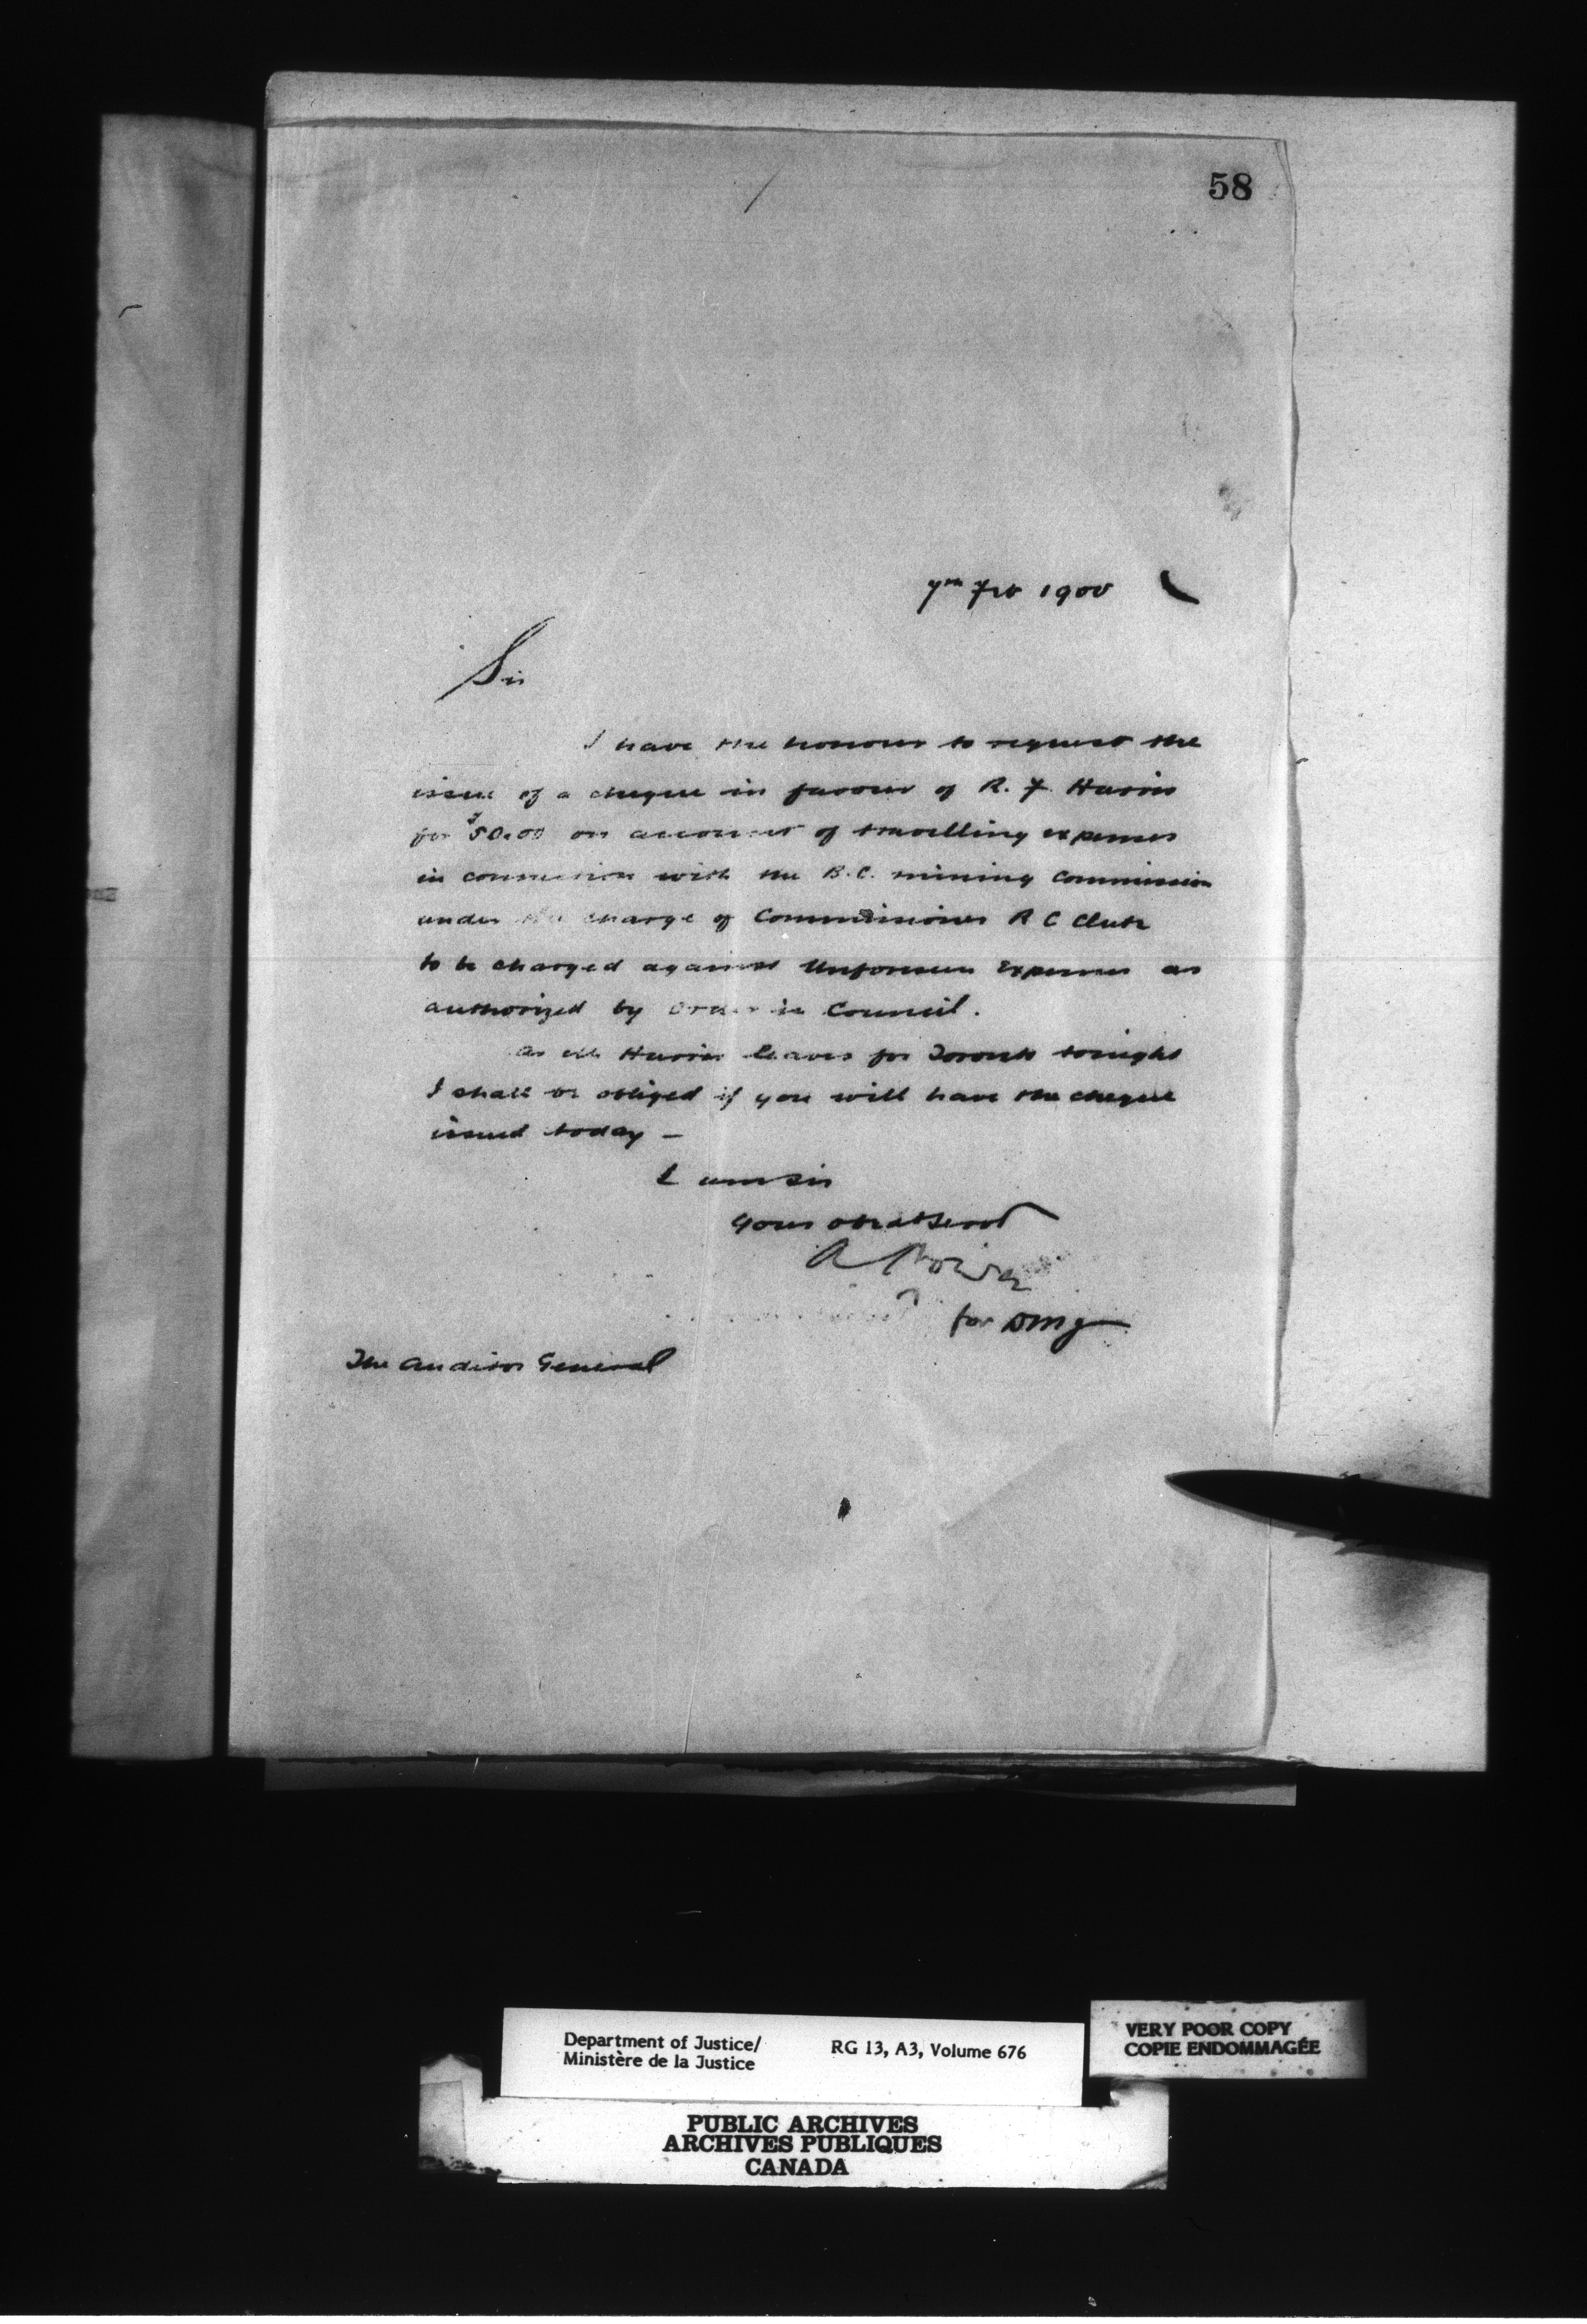 58
7th Feb 1900
Sir
I have the honour to request the
issue of a cheque in favour of R. F. Harris
for $50.00 on account of travelling expenses
in connection with the B.C. mining Commission
under the charge of Commissioner R C Clute
to be charged against Unforeseen Expenses as
authorized by Order in Council.
As Mr Harris leaves for Toronto tonight
I shall be obliged if you will have the cheque
issued today —
I am Sir
Your obedt Servt
A Power
for DMJ
The Auditor General
Department of Justice/
Ministère de la Justice
RG 13, A3, Volume 676
VERY POOR COPY
COPIE ENDOMMAGÉE
PUBLIC ARCHIVES
ARCHIVES PUBLIQUES
CANADA